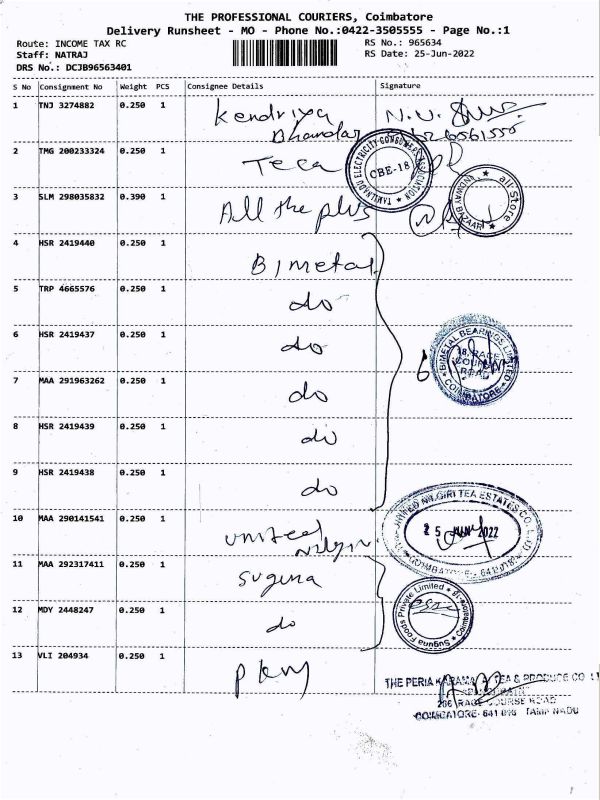 THE PROFESSIONAL COURIERS, Coimbatore
Delivery Runsheet - MO - Phone No.:0422-3505555 - Page No.:1
Route: INCOME TAX RC
RS No.: 965634
Staff: NATRAJ
RS Date: 25-Jun-2022
DRS No.: DCJB96563401
S No Consignment No Weight PCS Consignee Details Signature
1 TNJ 3274882 0.250 1 Kendriya Bhandar
2 TMG 200233324 0.250 1 Teca
TAMILNADU ELECTRICITY CONSUMERS ASSOCIATION CBE-18
3 SLM 298035832 0.390 1 All the plus
all Store BAZAAR
4 HSR 2419440 0.250 1 Bimetal
5 TRP 4665576 0.250 1 do
6 HSR 2419437 0.250 1 do
6
BIMETAL BEARINGS LIMITED 18, RACE COURSE ROAD COIMBATORE
7 MAA 291963262 0.250 1 do
8 HSR 2419439 0.250 1 do
9 HSR 2419438 0.250 1 do
10 MAA 290141541 0.250 1 United
UNITED NILGIRI TEA ESTATES CO. LTD
25 JUN 2022
COIMBATORE
11 MAA 292317411 0.250 1 Suguna
12 MDY 2448247 0.250 1 do
Suguna Foods Private Limited Coimbatore
13 VLI 204934 0.250 1
THE PERIA TEA & PRODUCE CO
RACE COURSE ROAD
COIMBATORE TAMIL NADU